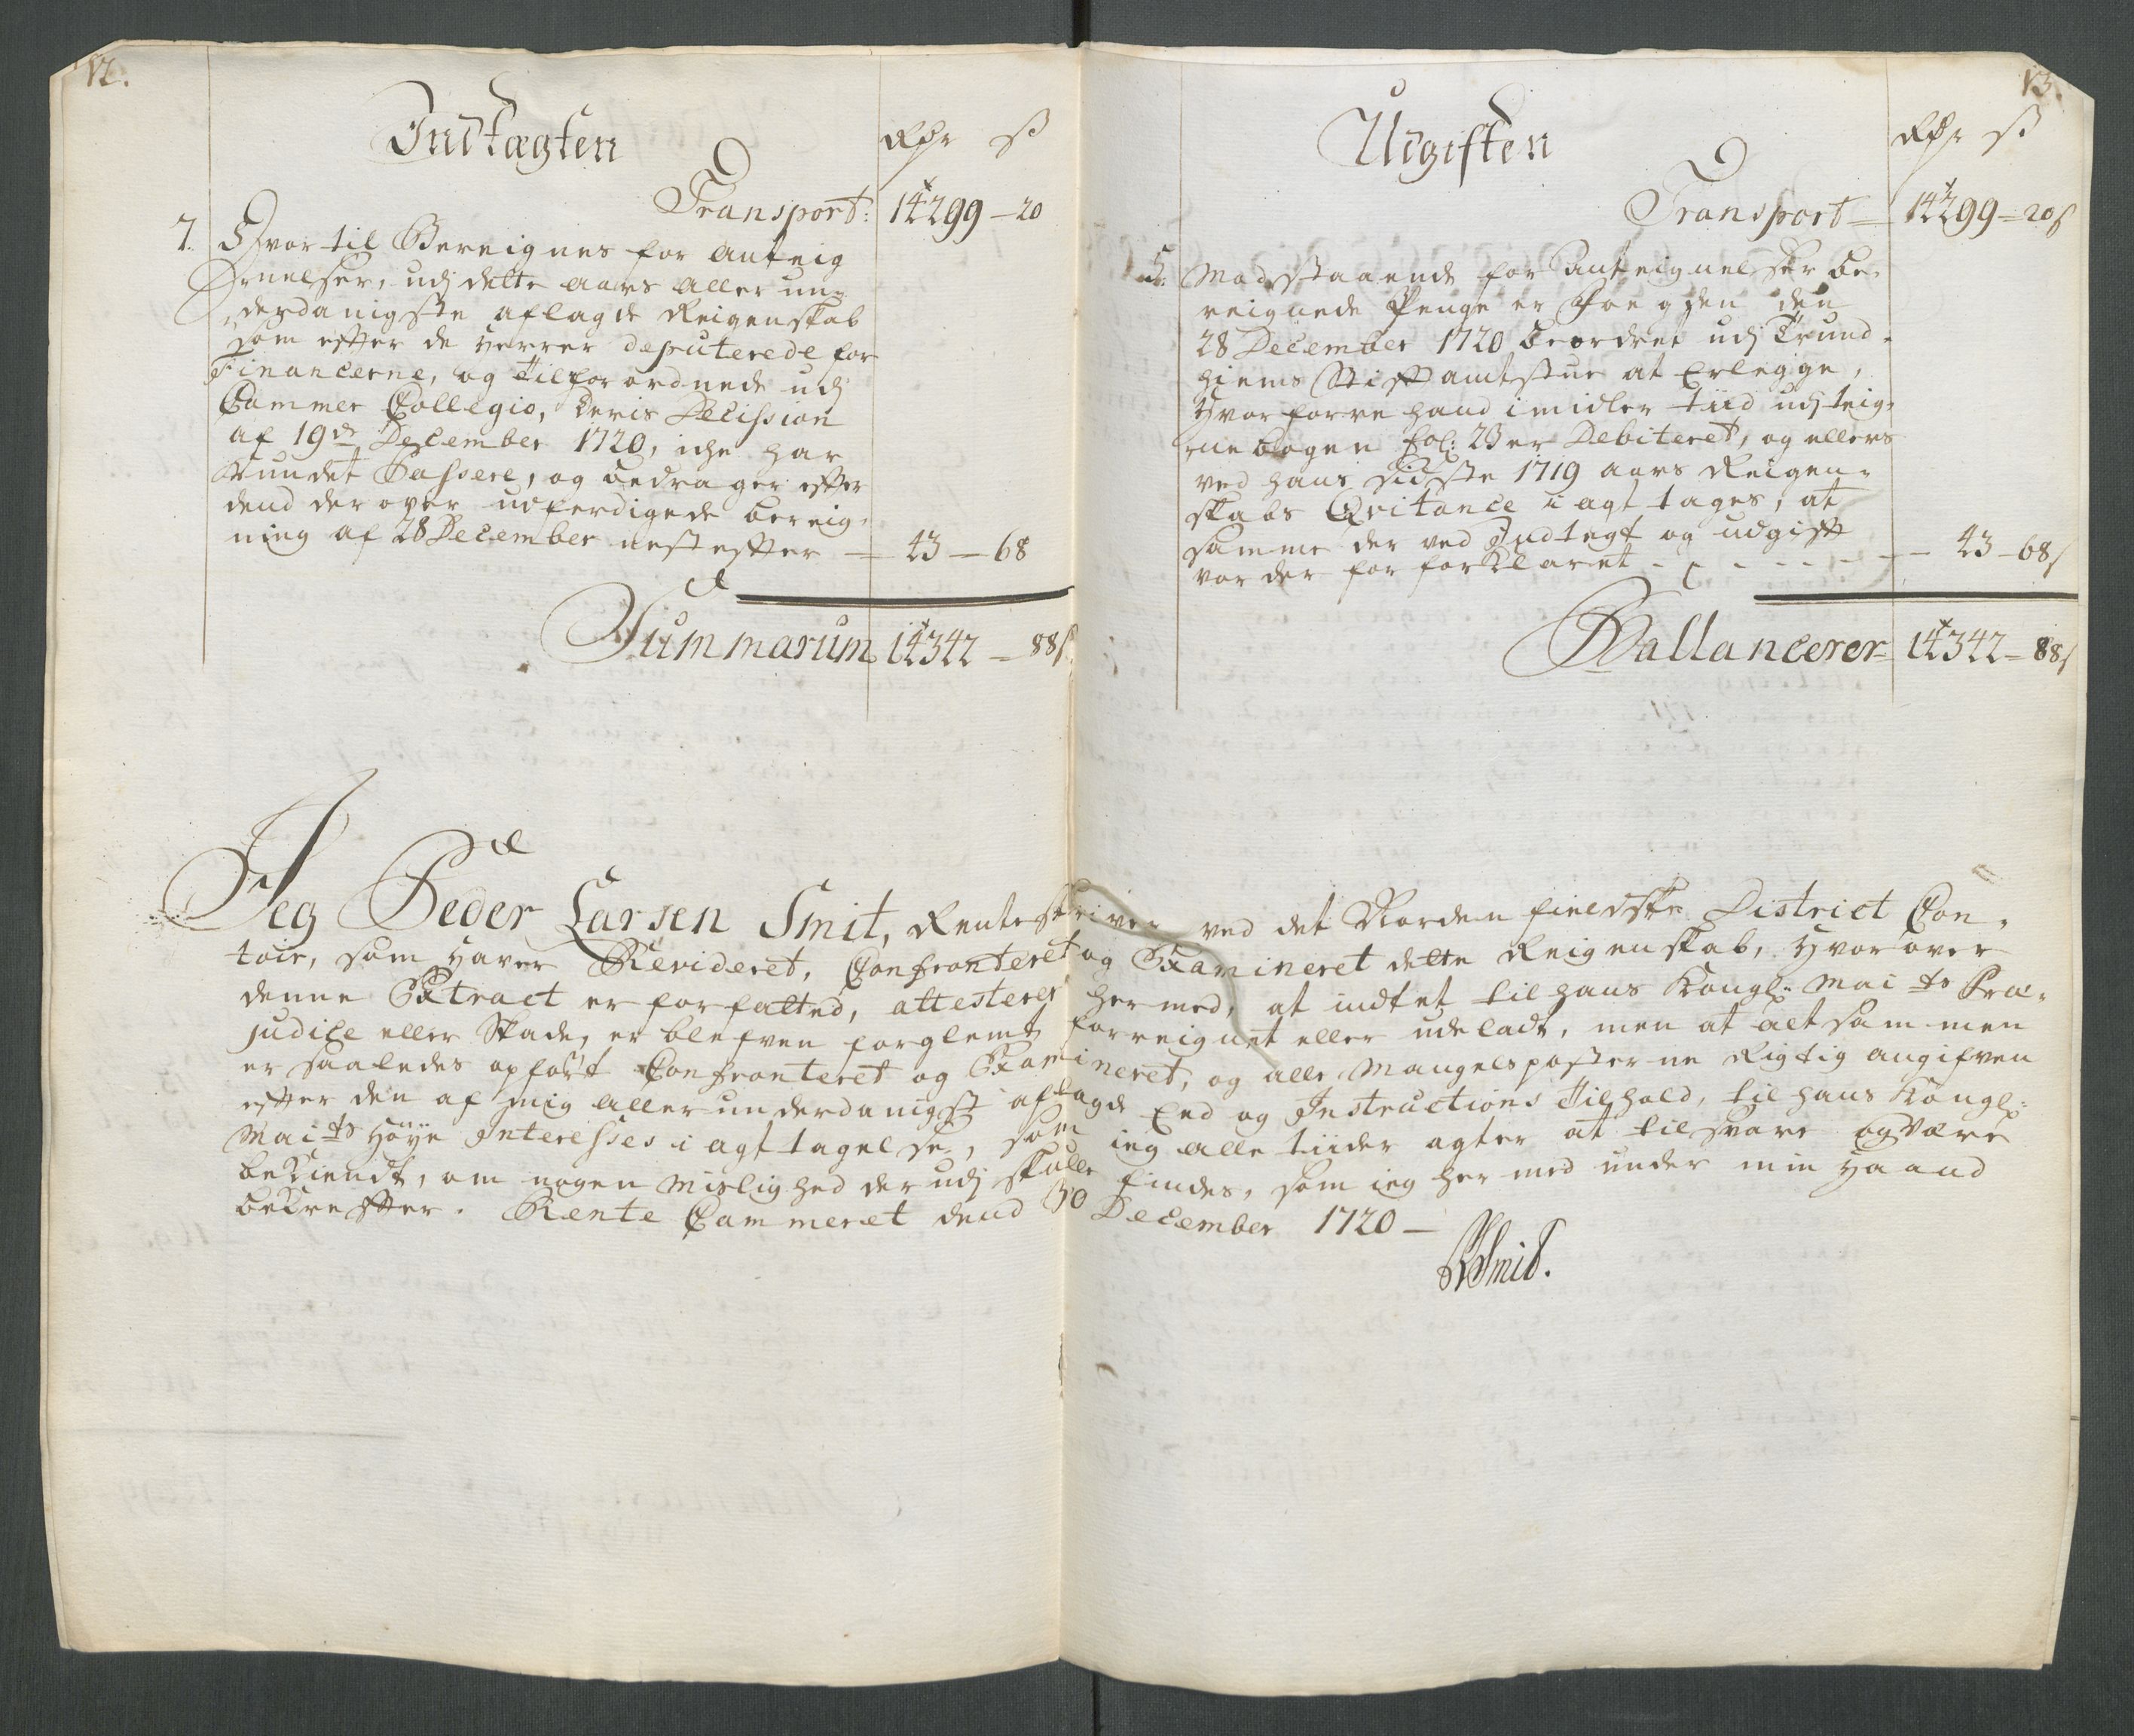 12.
Indtægten
Rdr ß
Transport: 14299 – 20
7. Hvor til Bereignes for anteig
nelser, udj dette aars aller un-
derdanigste aflagde Reigenskab
som efter de herrer deputerede for
Financerne, og tilforordnede udj
Cammer Collegio, deris Decission
af 19de December 1720, iche har
kundet Passere, og bedrager efter
dend derover udferdigede bereig-
ning af 28 December nest efter – 43 – 68
Summarum 14342 – 88ß
13.
Udgiften
Rdr ß
Transport – 14299 – 20ß
5. Modstaaende for anteignelser be-
reignede Penge er Fogden den
28 December 1720 beordret udj Trund-
hiems Stiftamtstue at Erlegge,
hvorforre hand imidler tiid udj teig-
nebogen fol: 23 er Debiteret, og ellers
ved hans sidste 1719 aars Reigen-
skabs Qvitance i agt tages, at
samme der ved Indtegt og udgift
vorder for forklaret – – – 43 – 68ß
Ballancerer – 14342 – 88ß
Jeg Peder Larsen Smit, Renteskriver ved det Nordenfieldske District Con-
toir, som haver Revideret, Confronteret og Examineret dette Reigenskab, hvorover
denne Extract er forfatted, attesterer hermed, at indtet til hans Kongl: Maits Præ-
judice eller Skade, er blefven forglemt forreignet eller udeladt, men at alt sammen
er saaledes opført Confronteret og Examineret, og alle Mangelsposterne Rigtig angifven
efter den af mig allerunderdanigst aflagde Eed og Instructions Tilhold, til hans Kongl:
Maits Høye Interesses i agt tagelse, som ieg alle tiider agter at tilsvare og være
bekiendt, om nogen Mislighed der udj skulle findes, som ieg hermed under min Haand
bekrefter. Rente Cammeret dend 30 December 1720 –
PLSmid.